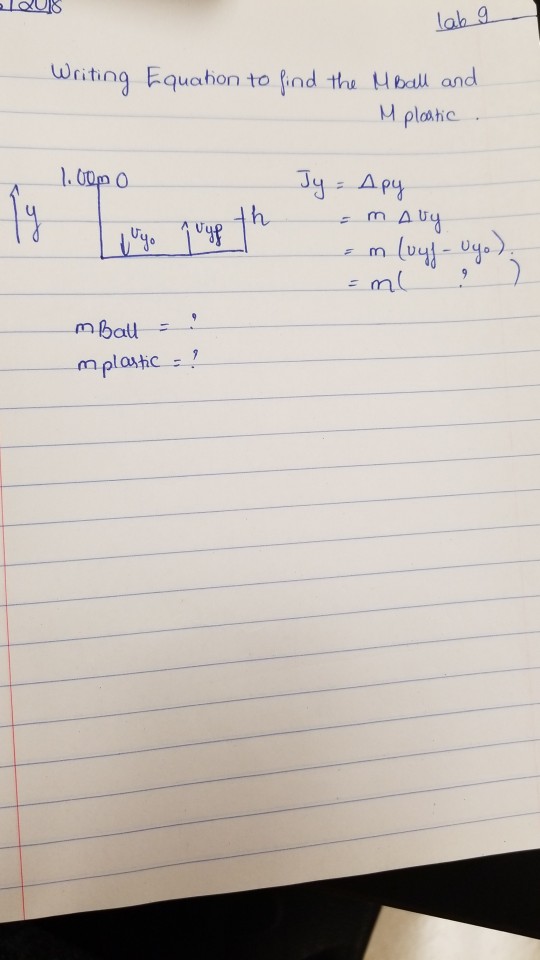 2018
lab 9
Writing Equation to find the MBall and
M plastic.
1.00m O
y
vyo
vyf
h
Jy = Δpy
= m Δvy
= m (vyf - vyo).
= m( ? )
mBall = ?
mplastic = ?